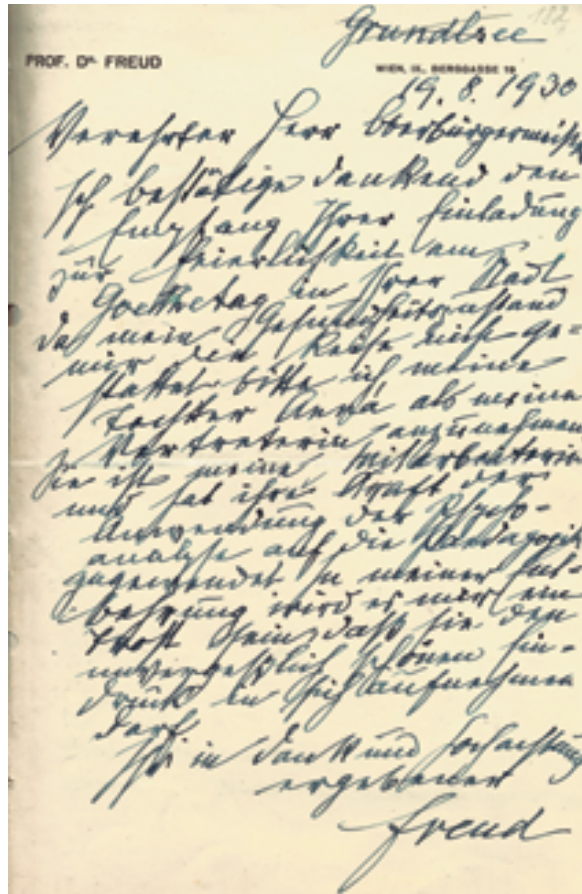 182
Grundlsee
PROF. DR. FREUD
WIEN, IX., BERGGASSE 19
19. 8. 1930
Verehrter Herr Oberbürgermeister
Ich bestätige dankend den
Empfang Ihrer Einladung
zur Feierlichkeit am
Goethetag in Ihrer Stadt
da mein Gesundheitszustand
mir die Reise nicht ge=
stattet bitte ich meine
Tochter Anna als meine
Vertreterin anzunehmen
Sie ist meine Mitarbeiterin
und hat ihre Kraft der
Anwendung der Psycho-
analyse auf die Pädagogik
zugewendet In meiner Ent-
behrung wird es mir ein
Trost sein, daß sie den
unvergeßlich schönen Ein-
druck in sich aufnehmen
darf.
Ihr in Dank und Hochachtung
ergebener
Freud